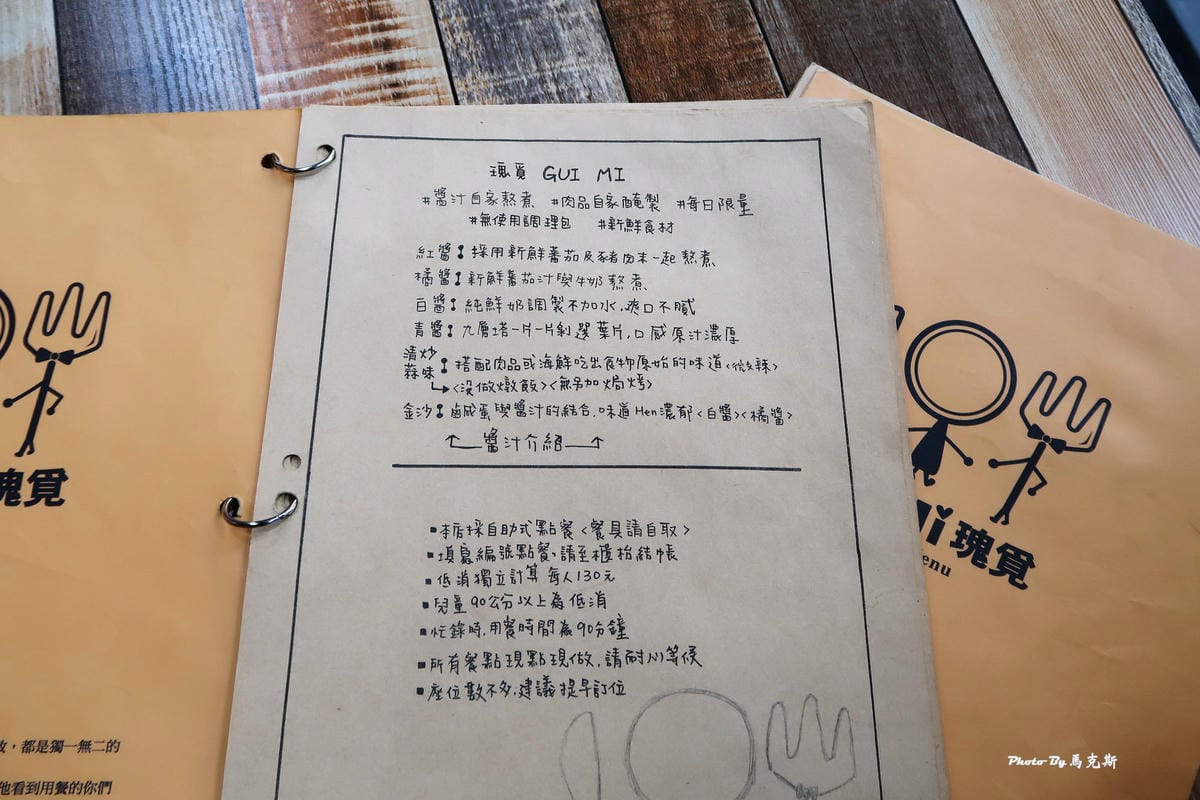 瑰覓 GUI MI
#醬汁自家熬煮 #肉品自家醃製 #每日限量
#無使用調理包 #新鮮食材
紅醬：採用新鮮蕃茄及豬肉末一起熬煮
橘醬：新鮮蕃茄汁與牛奶熬煮
白醬：純鮮奶調製不加水,爽口不膩
青醬：九層塔一片一片剝選葉片,口感原汁濃厚
清炒
蒜味：搭配肉品或海鮮吃出食物原始的味道<微辣>
<沒做燉飯><無另加焗烤>
金沙：鹹蛋與醬汁的結合,味道Hen濃郁<白醬><橘醬>
醬汁介紹
▪本店採自助式點餐<餐具請自取>
▪填寫編號點餐,請至櫃枱結帳
▪低消獨立計算 每人130元
▪兒童90公分以上為低消
▪忙錄時,用餐時間為90分鐘
▪所有餐點現點現做,請耐心等候
▪座位數不多,建議提早訂位
瑰覓
，都是獨一無二的
他看到用餐的你們
Mi 瑰覓
enu
Photo By 馬克斯